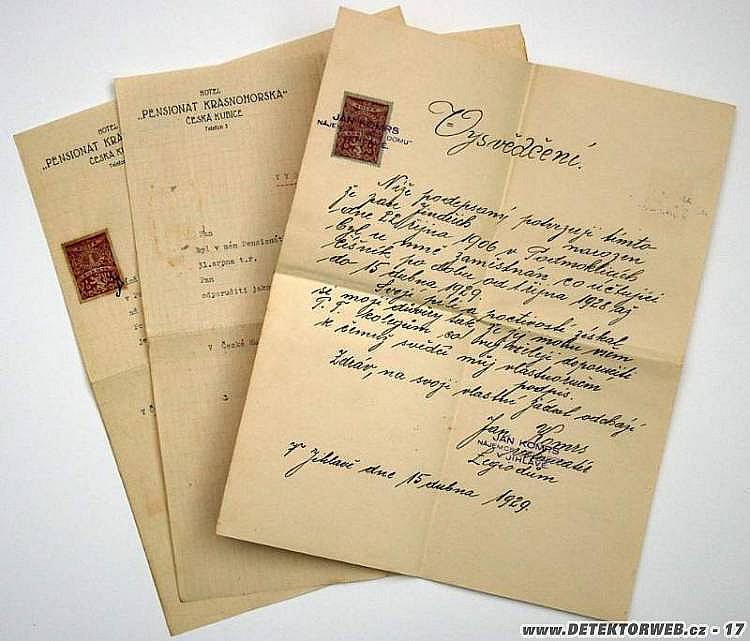 HOTEL
„PENSIONAT KRÁSNOHORSKA“
ČESKÁ KUBICE
Telefon 3
HOTEL
„PENSIONAT KR
ČESKÁ K
Pan
byl v mém Pensionát
31.srpna t.r.
Pan
odporučiti jako
V České Ku
JAN KOMRS
NÁJEMCE DOMU"
Vysvědčení.
Níže podepsaný potvrzuji tímto
že pan Jindřich narozen
dne 22. října 1906 v Podmoklicích
byl u mne zaměstnán co účtující
číšník po dobu od 1 října 1928 až
do 15 dubna 1929.
Svojí pílí a poctivostí získal
si moji důvěry tak že jej mohu všem
T. J. kolegům co nejvřeleji doporučiti
k čemuž svědčí můj vlastnoruční
podpis.
Zdráv, na svojí vlastní žádost odchází
Jan Komrs
JAN KOMRS
V JIHLAVĚ
Legiodům
V Jihlavě dne 15 dubna 1929.
www.DETEKTORWEB.cz - 17